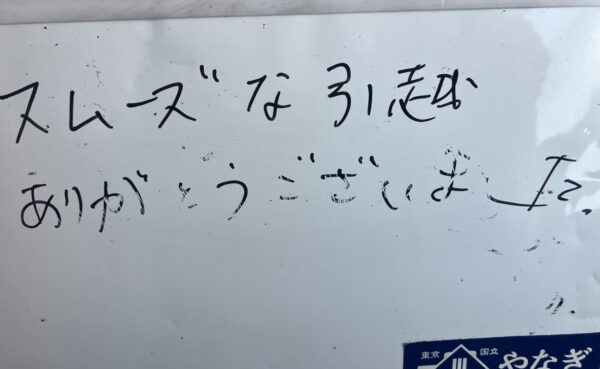 スムーズな引越
ありがとうございました。
東京 国立 やなぎ